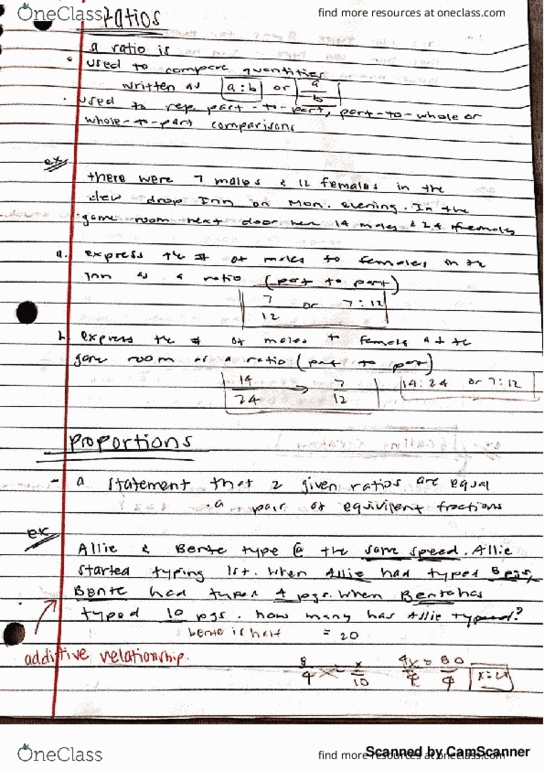 OneClass
find more resources at oneclass.com
Ratios
a ratio is
used to compare quantities
written as a:b or a/b
used to rep part-to-part, part-to-whole or
whole-to-part comparisons
ex
there were 7 males & 12 females in the
dew drop Inn on Mon. evening. In the
game room next door were 14 males & 24 females
a. express the # of males to females in the
Inn as a ratio (part to part)
7/12 or 7:12
b. express the # of males to females at the
game room as a ratio (part to part)
14/24 → 7/12 14:24 or 7:12
Proportions
- a statement that 2 given ratios are equal
. a pair of equivilent fractions
ex
Allie & Bente type @ the same speed. Allie
started typing 1st. when Allie had typed 8 pgs,
Bente had typed 4 pgs. when Bente has
typed 10 pgs. how many has Allie typed?
bente is half = 20
additive relationship.
8/4 x/10 4x/4 = 80/4
OneClass
find more resources at oneclass.com
Scanned by CamScanner